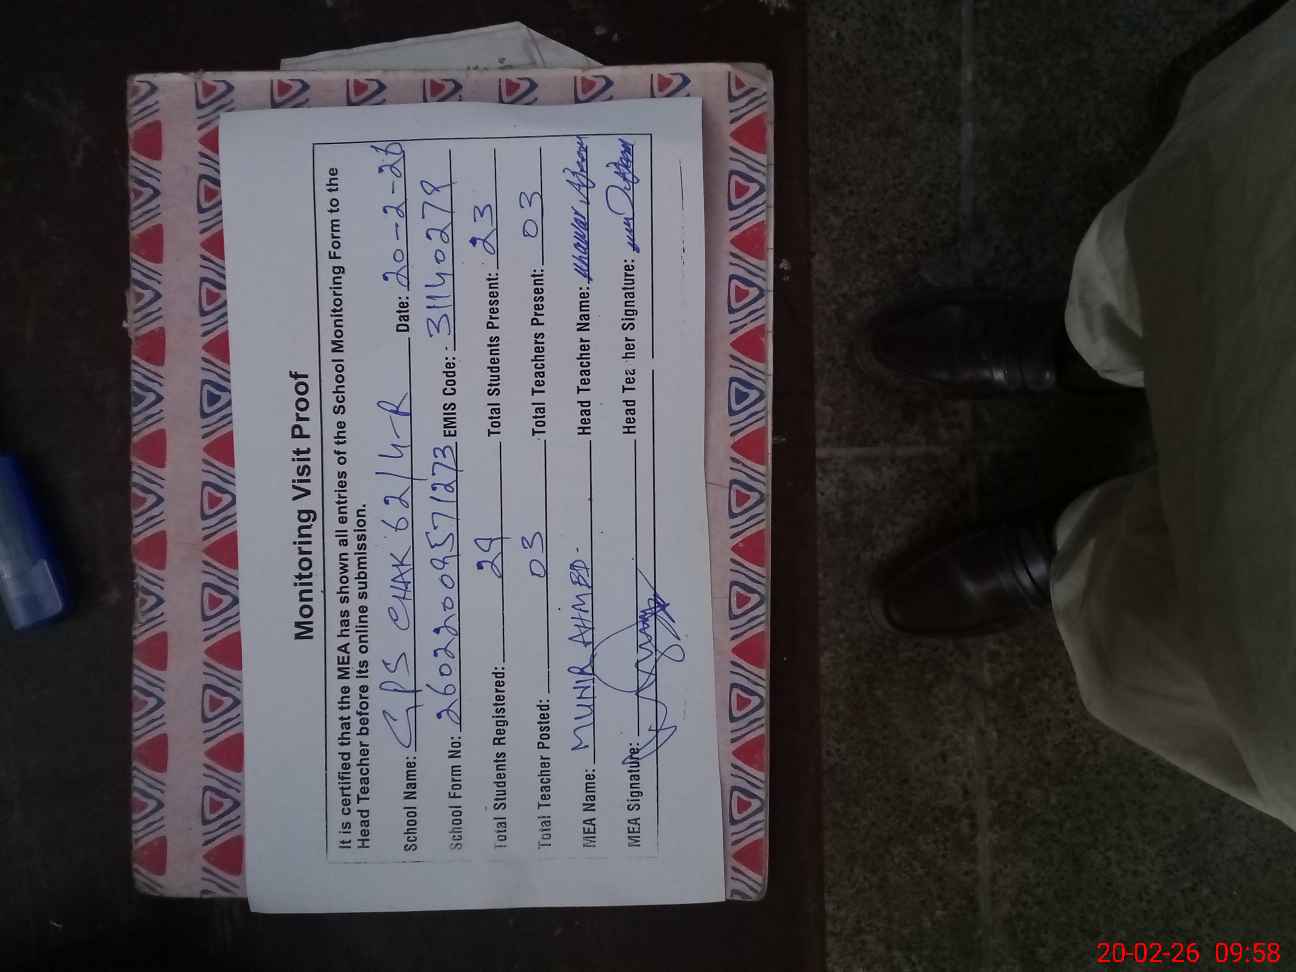 Monitoring Visit Proof
It is certified that the MEA has shown all entries of the School Monitoring Form to the
Head Teacher before its online submission.
School Name: GPS CHAK 62/4-R Date: 20-2-26
School Form No: 26022009571273 EMIS Code: 31140279
Total Students Registered: 29 Total Students Present: 23
Total Teacher Posted: 03 Total Teachers Present: 03
MEA Name: MUNIR AHMED- Head Teacher Name:
MEA Signature: Head Teacher Signature:
20-02-26 09:58